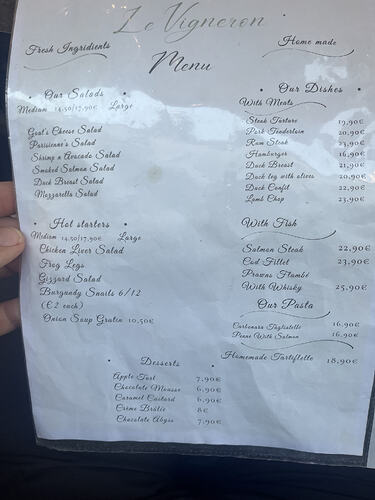 Le Vigneron
Fresh Ingridients
Home made
Menu
• Our Salads •
Medium 14.50/17,90€ Large
Goat's Cheese Salad
Parisienne's Salad
Shrimp n Avocado Salad
Smoked Salmon Salad
Duck Breast Salad
Mozzarella Salad
• Hot starters •
Medium 14.50/17,90€ Large
Chicken Liver Salad
Frog Legs
Gizzard Salad
Burgundy Snails 6/12
(€2 each)
Onion Soup Gratin 10,50€
• Our Dishes •
With Meats
Steak Tartare 19,90€
Pork Tenderloin 20,90€
Rum Steak 23,90€
Hamburger 16,90€
Duck Breast 21,90€
Duck leg with olives 20,90€
Duck Confit 22,90€
Lamb Chop 23,90€
With Fish
Salmon Steak 22,90€
Cod Fillet 23,90€
Prawns Flambé
With Whisky 25,90€
Our Pasta
Carbonara Tagliatelle 16,90€
Penne With Salmon 16,90€
Homemade Tartiflette 18,90€
• Desserts •
Apple Tart 7,90€
Chocolate Mousse 6,90€
Caramel Custard 6,90€
Crème Brûlée 8€
Chocolate Abyss 7,90€